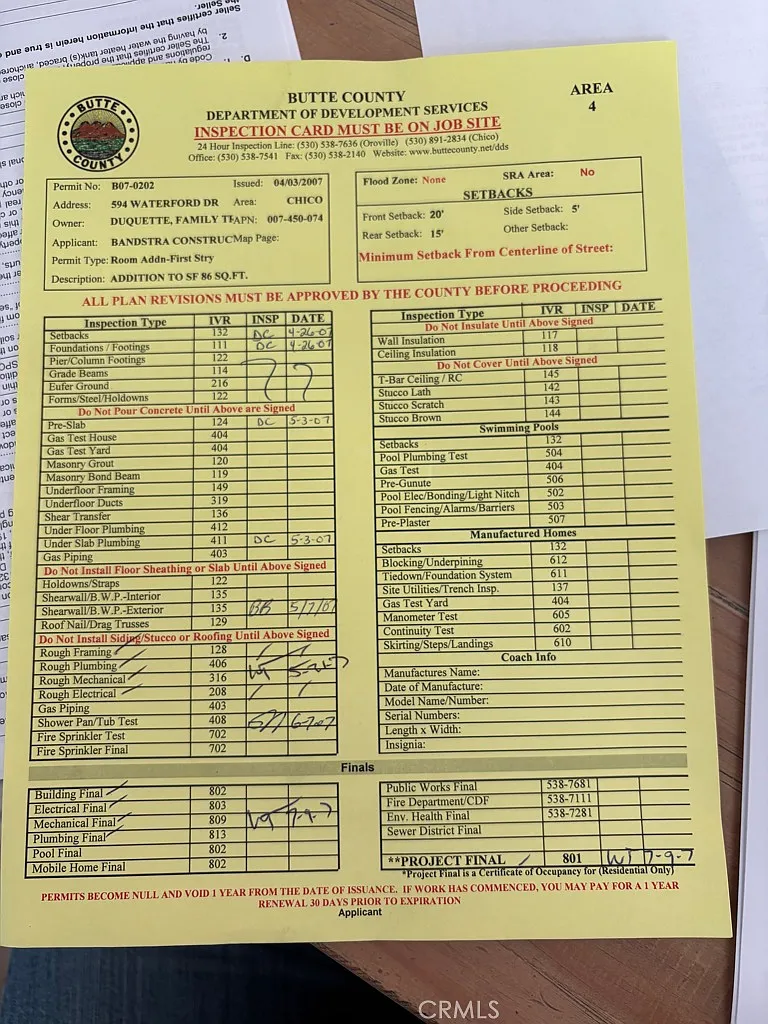 BUTTE COUNTY
BUTTE COUNTY
DEPARTMENT OF DEVELOPMENT SERVICES
INSPECTION CARD MUST BE ON JOB SITE
24 Hour Inspection Line: (530) 538-7636 (Oroville) (530) 891-2834 (Chico)
Office: (530) 538-7541 Fax: (530) 538-2140 Website: www.buttecounty.net/dds
AREA
4
Permit No: B07-0202 Issued: 04/03/2007
Address: 594 WATERFORD DR Area: CHICO
Owner: DUQUETTE, FAMILY TFAPN: 007-450-074
Applicant: BANDSTRA CONSTRUCMap Page:
Permit Type: Room Addn-First Stry
Description: ADDITION TO SF 86 SQ.FT.
Flood Zone: None SRA Area: No
SETBACKS
Front Setback: 20' Side Setback: 5'
Rear Setback: 15' Other Setback:
Minimum Setback From Centerline of Street:
ALL PLAN REVISIONS MUST BE APPROVED BY THE COUNTY BEFORE PROCEEDING
Inspection Type IVR INSP DATE
Setbacks 132 DC 4-26-07
Foundations / Footings 111 DC 4-26-07
Pier/Column Footings 122
Grade Beams 114
Eufer Ground 216
Forms/Steel/Holdowns 122
Do Not Pour Concrete Until Above are Signed
Pre-Slab 124 DC 5-3-07
Gas Test House 404
Gas Test Yard 404
Masonry Grout 120
Masonry Bond Beam 119
Underfloor Framing 149
Underfloor Ducts 319
Shear Transfer 136
Under Floor Plumbing 412
Under Slab Plumbing 411 DC 5-3-07
Gas Piping 403
Do Not Install Floor Sheathing or Slab Until Above Signed
Holdowns/Straps 122
Shearwall/B.W.P.-Interior 135
Shearwall/B.W.P.-Exterior 135 BB 5/7/07
Roof Nail/Drag Trusses 129
Do Not Install Siding/Stucco or Roofing Until Above Signed
Rough Framing 128
Rough Plumbing 406
Rough Mechanical 316
Rough Electrical 208
Gas Piping 403
Shower Pan/Tub Test 408 6-7-07
Fire Sprinkler Test 702
Fire Sprinkler Final 702
Inspection Type IVR INSP DATE
Do Not Insulate Until Above Signed
Wall Insulation 117
Ceiling Insulation 118
Do Not Cover Until Above Signed
T-Bar Ceiling / RC 145
Stucco Lath 142
Stucco Scratch 143
Stucco Brown 144
Swimming Pools
Setbacks 132
Pool Plumbing Test 504
Gas Test 404
Pre-Gunute 506
Pool Elec/Bonding/Light Nitch 502
Pool Fencing/Alarms/Barriers 503
Pre-Plaster 507
Manufactured Homes
Setbacks 132
Blocking/Underpining 612
Tiedown/Foundation System 611
Site Utilities/Trench Insp. 137
Gas Test Yard 404
Manometer Test 605
Continuity Test 602
Skirting/Steps/Landings 610
Coach Info
Manufactures Name:
Date of Manufacture:
Model Name/Number:
Serial Numbers:
Length x Width:
Insignia:
Finals
Building Final 802
Electrical Final 803
Mechanical Final 809 7-9-7
Plumbing Final 813
Pool Final 802
Mobile Home Final 802
Public Works Final 538-7681
Fire Department/CDF 538-7111
Env. Health Final 538-7281
Sewer District Final
**PROJECT FINAL 801 7-9-7
*Project Final is a Certificate of Occupancy for (Residential Only)
PERMITS BECOME NULL AND VOID 1 YEAR FROM THE DATE OF ISSUANCE. IF WORK HAS COMMENCED, YOU MAY PAY FOR A 1 YEAR
RENEWAL 30 DAYS PRIOR TO EXPIRATION
Applicant
CRMLS